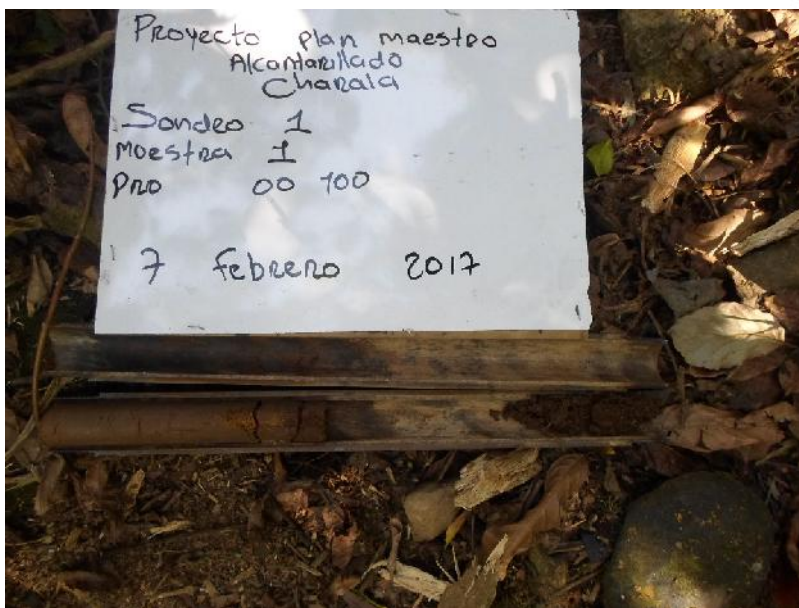 Proyecto plan maestro
Alcantarillado
Charala
Sondeo 1
Moestra 1
Pro 00 100
7 febrero 2017